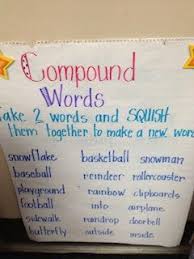 Compound
Words
Take 2 words and SQUISH
them together to make a new word
snowflake basketball snowman
baseball reindeer rollercoaster
playground rainbow clipboards
football into airplane
sidewalk raindrop doorbell
butterfly outside inside